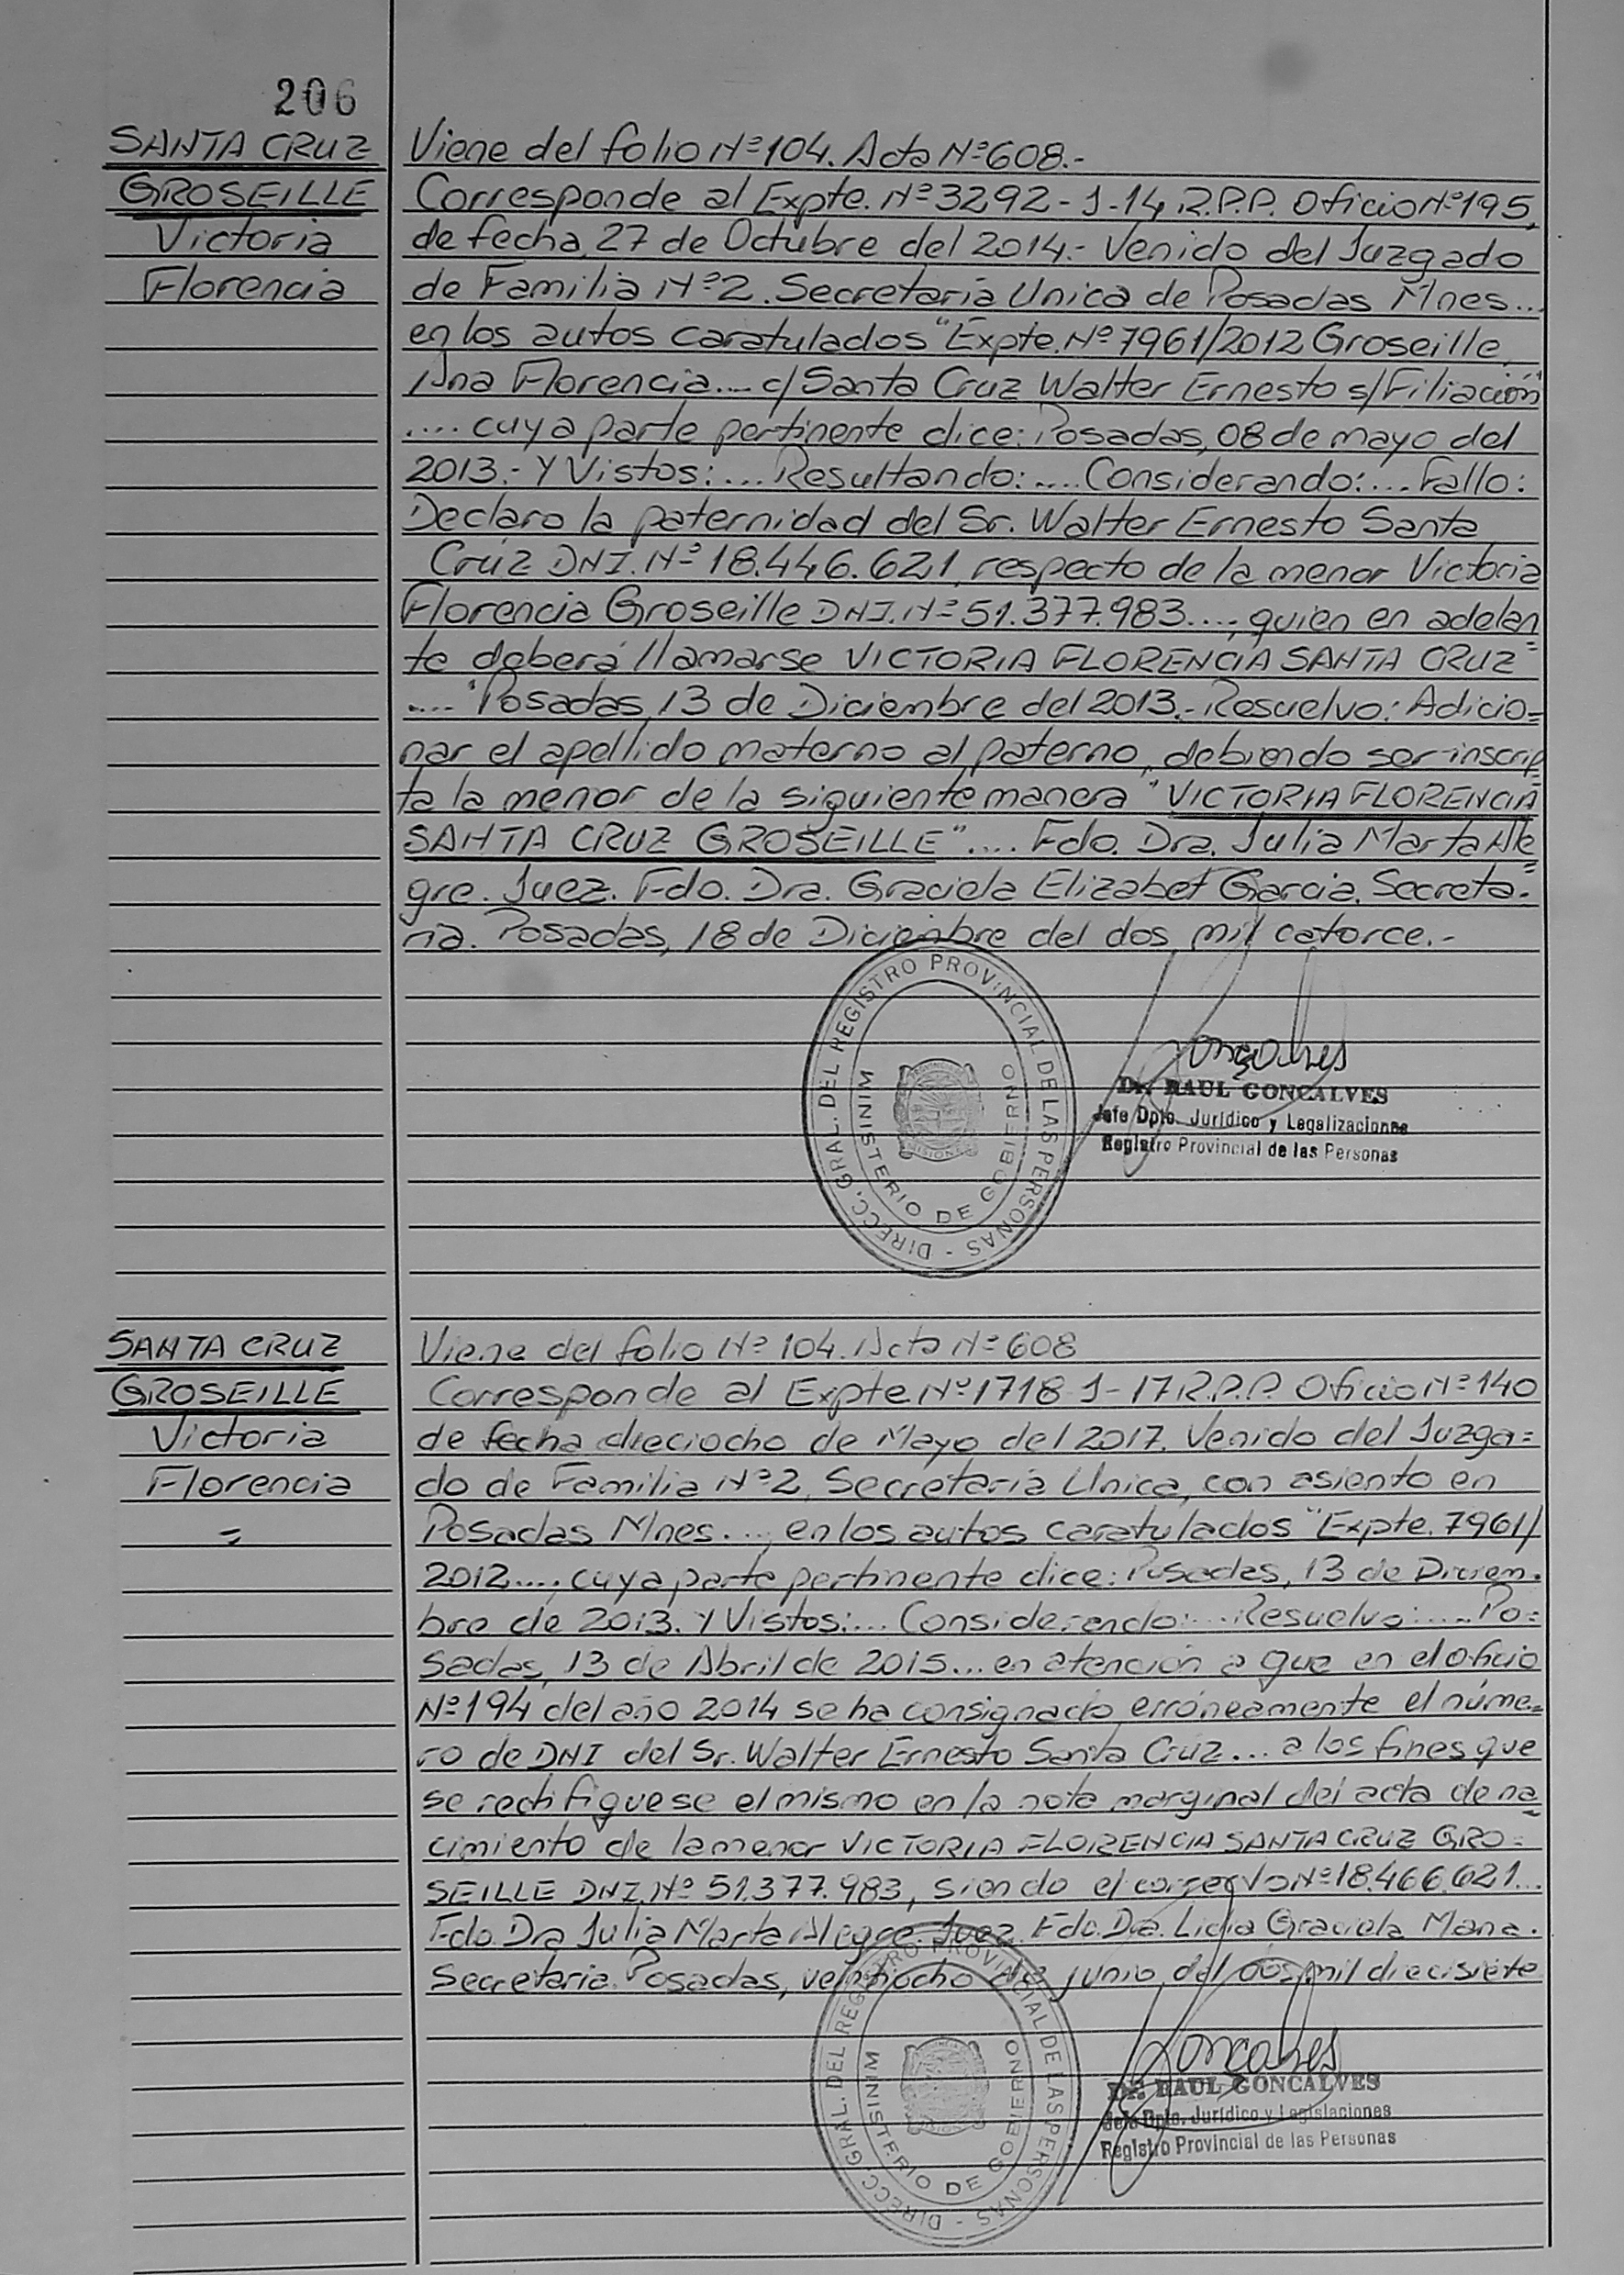 206
SANTA CRUZ
GROSEILLE
Victoria
Florencia
Viene del folio Nº 104. Acta Nº 608.-
Corresponde al Expte. Nº 3292-J-14 R.P.P. Oficio Nº 195,
de fecha 27 de Octubre del 2014.- Venido del Juzgado
de Familia Nº 2. Secretaría Unica de Posadas Mnes...
en los autos caratulados "Expte. Nº 7961/2012 Groseille,
Ana Florencia.... c/ Santa Cruz Walter Ernesto s/ Filiación"
.... cuya parte pertinente dice: Posadas, 08 de mayo del
2013.- Y Vistos:... Resultando:.... Considerando:.... Fallo:
Declaro la paternidad del Sr. Walter Ernesto Santa
Cruz DNI. Nº 18.446.621, respecto de la menor Victoria
Florencia Groseille DNI. Nº 51.377.983...., quien en adelan=
te deberá llamarse VICTORIA FLORENCIA SANTA CRUZ"
.... "Posadas, 13 de Diciembre del 2013.- Resuelvo: Adicio=
nar el apellido materno al paterno, debiendo ser inscrip=
ta la menor de la siguiente manera "VICTORIA FLORENCIA
SANTA CRUZ GROSEILLE".... Fdo. Dra. Julia Marta Ale=
gre. Juez. Fdo. Dra. Graciela Elizabet Garcia. Secreta=
ria. Posadas, 18 de Diciembre del dos mil catorce.-
DIRECC. GRAL. DEL REGISTRO PROVINCIAL DE LAS PERSONAS -
MINISTERIO DE GOBIERNO
MISIONES
Gonçalves
Dr. RAUL GONCALVES
Jefe Dpto. Jurídico y Legalizaciones
Registro Provincial de las Personas
SANTA CRUZ
GROSEILLE
Victoria
Florencia
=
Viene del folio Nº 104. Acta Nº 608
Corresponde al Expte Nº 1718 J-17 R.P.P. Oficio Nº 140
de fecha dieciocho de Mayo del 2017. Venido del Juzga=
do de Familia Nº 2, Secretaría Unica, con asiento en
Posadas Mnes...., en los autos caratulados "Expte. 7961/
2012...., cuya parte pertinente dice: Posadas, 13 de Diciem=
bre de 2013. Y Vistos:... Considerando:... Resuelvo:.... Po=
sadas, 13 de Abril de 2015... en atención a que en el oficio
Nº 194 del año 2014 se ha consignado erróneamente el núme=
ro de DNI del Sr. Walter Ernesto Santa Cruz... a los fines que
se rectifiquese el mismo en la nota marginal del acta de na=
cimiento de la menor VICTORIA FLORENCIA SANTA CRUZ GRO=
SEILLE DNI. Nº 51.377.983, siendo el correcto Nº 18.466.621...
Fdo. Dra Julia Marta Alegre. Juez. Fdo. Dra. Lidia Graciela Mana.
Secretaria. Posadas, veintiocho de junio del dos mil diecisiete
DIRECC. GRAL. DEL REGISTRO PROVINCIAL DE LAS PERSONAS -
MINISTERIO DE GOBIERNO
Gonçalves
Dr. RAUL GONCALVES
Jefe Dpto. Jurídico y Legislaciones
Registro Provincial de las Personas